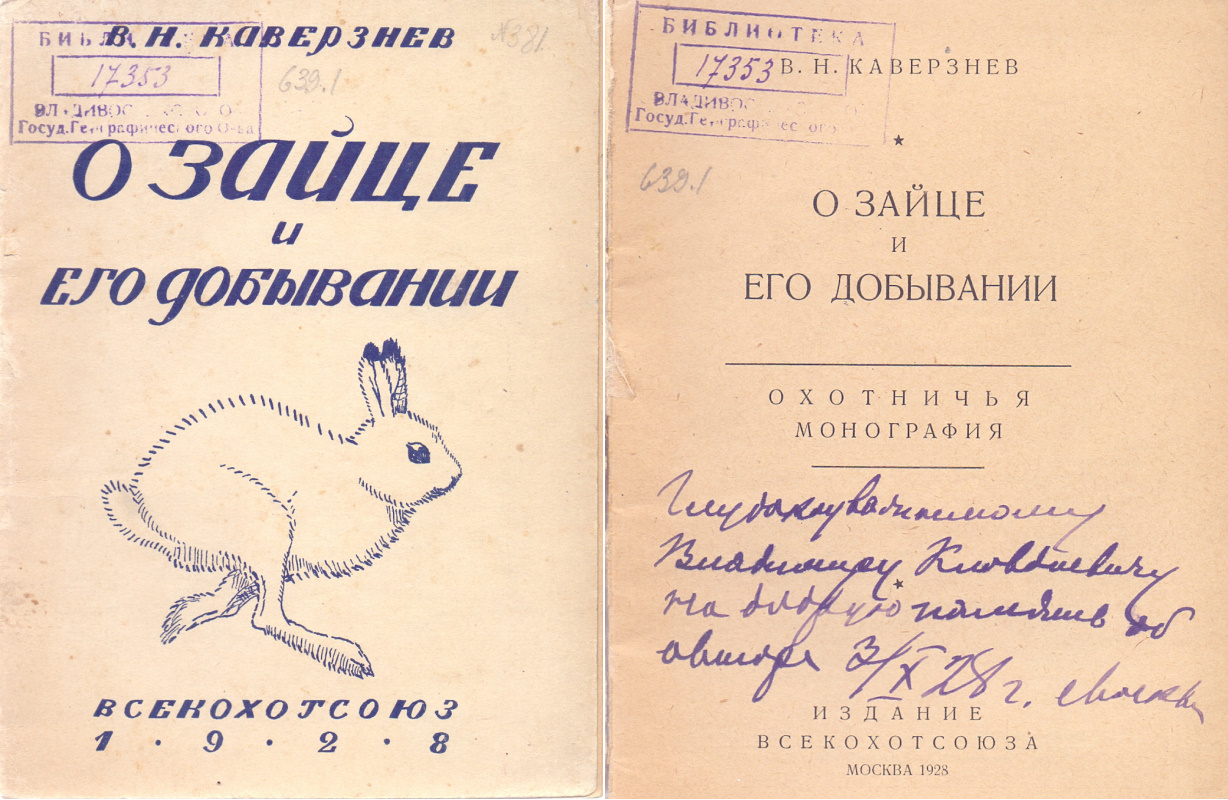 В. Н. КАВЕРЗНЕВ
№381
17353
639.1
Госуд. Географического О-ва
О ЗАЙЦЕ
и
ЕГО ДОБЫВАНИИ
ВСЕКОХОТСОЮЗ
1 · 9 · 2 · 8
БИБЛИОТЕКА
17353
В. Н. КАВЕРЗНЕВ
Госуд. Географического
639.1
О ЗАЙЦЕ
И
ЕГО ДОБЫВАНИИ
ОХОТНИЧЬЯ
МОНОГРАФИЯ
Глубокоуважаемому
Владимиру Клавдиевичу
на добрую память об
авторе 3/X 28 г. Москва
ИЗДАНИЕ
ВСЕКОХОТСОЮЗА
МОСКВА 1928